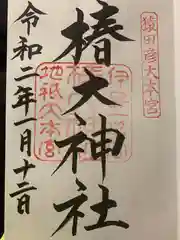 猿田彦大本宮
椿大神社
地祇大本宮
令和二年一月十二日